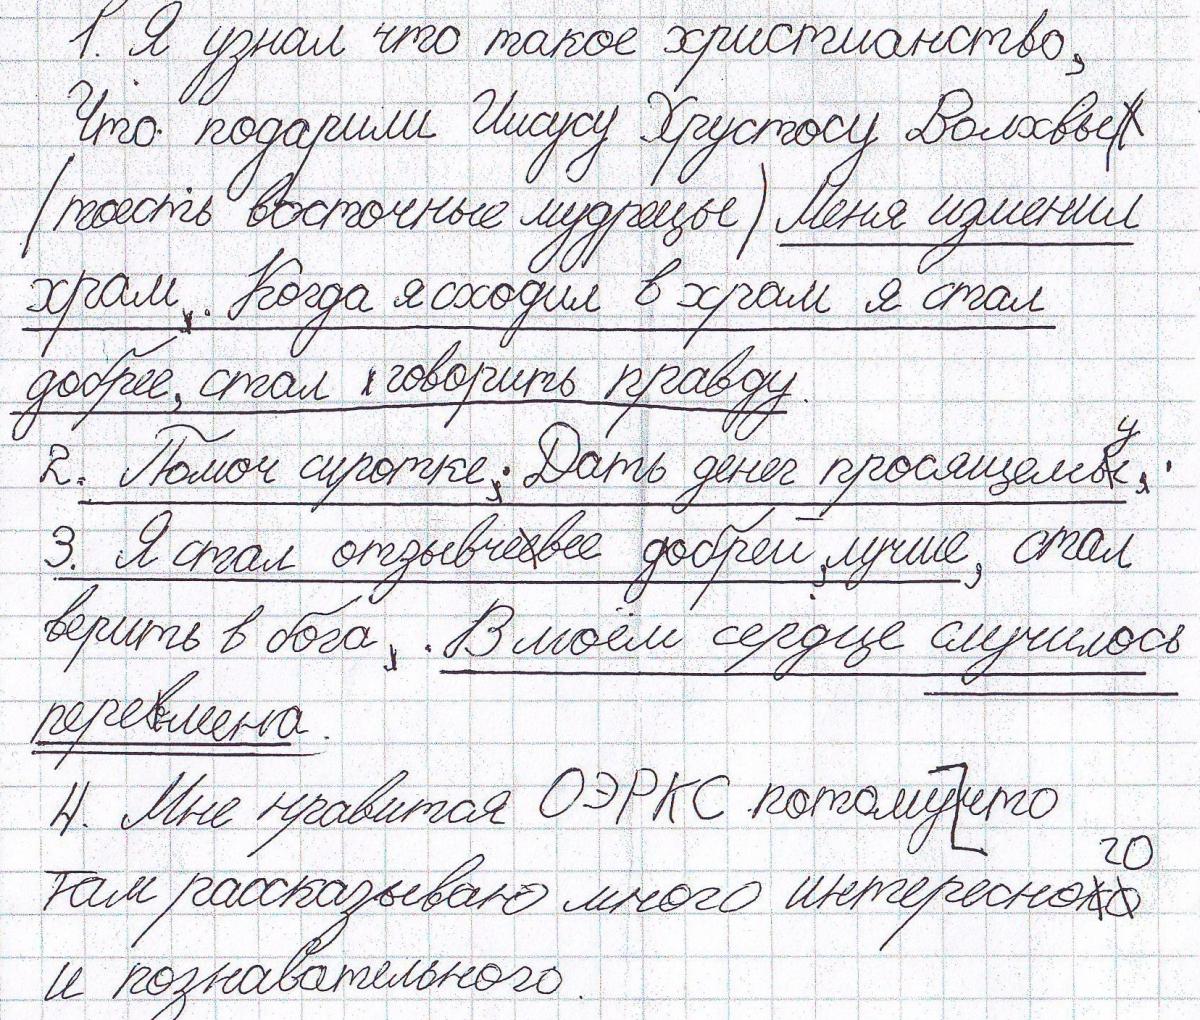 1. Я узнал что такое христианство,
Что подарили Иисусу Хрустосу Волхвы
(тоесть восточные мудрецы) Меня изменил
храм,. Когда я сходил в храм я стал
добрее, стал говорить правду.
2. Помоч сиротке; Дать денег просящему,.
3. Я стал отзывчевее добрей, лучше, стал
верить в бога,. В моём сердце случилось
перемена.
4. Мне нравитая ОЭРКС потому что
там рассказываю много интересного
и познавательного.